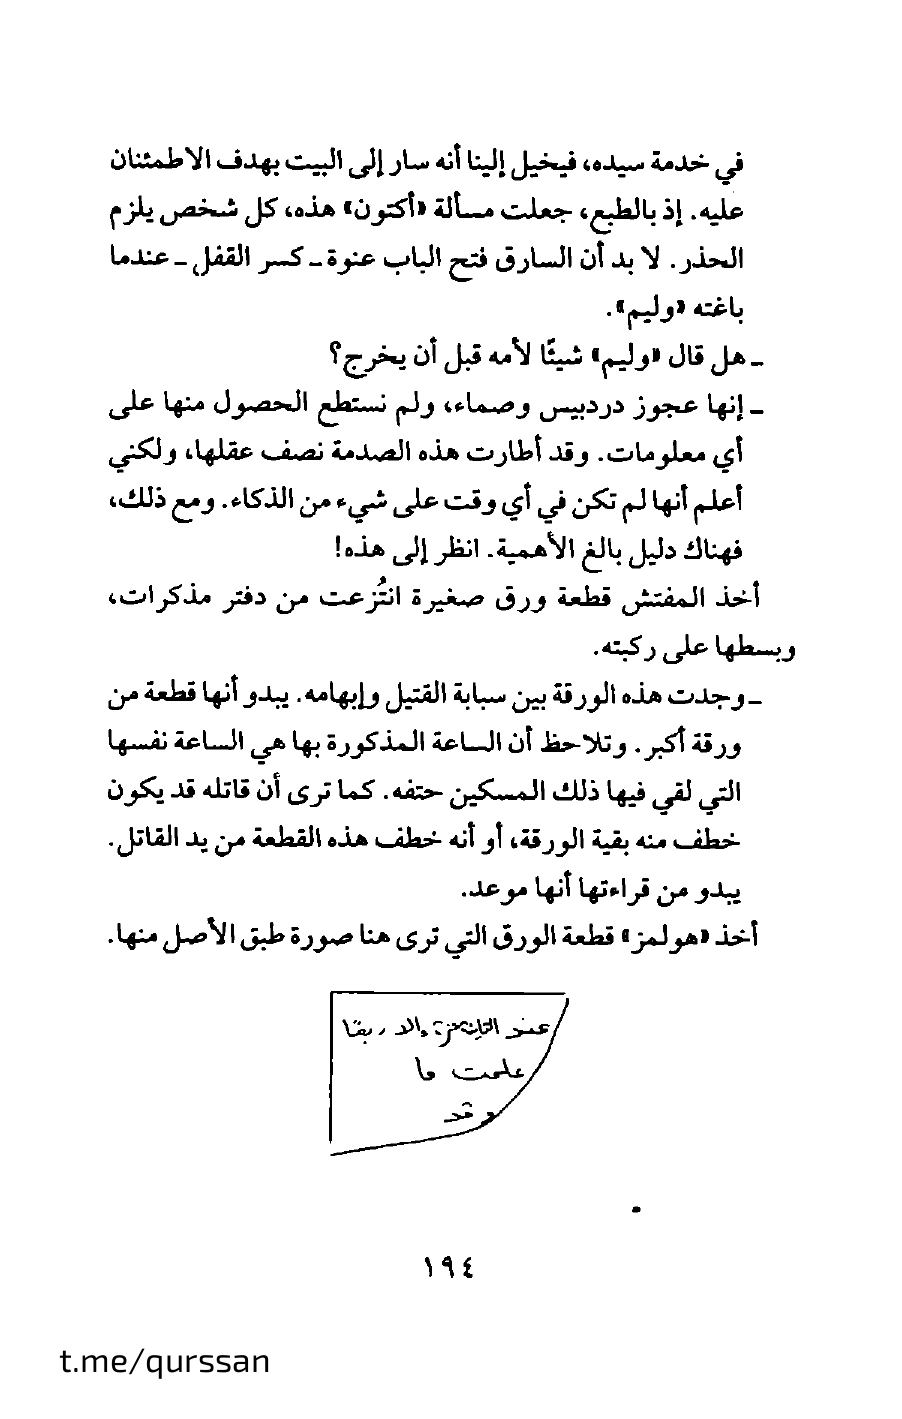 في خدمة سيده، فيخيل إلينا أنه سار إلى البيت بهدف الاطمئنان
عليه. إذ بالطبع، جعلت مسألة «أكتون» هذه، كل شخص يلزم
الحذر. لا بد أن السارق فتح الباب عنوة - كسر القفل - عندما
باغته «وليم».
- هل قال «وليم» شيئًا لأمه قبل أن يخرج؟
- إنها عجوز دردبيس وصماء، ولم نستطع الحصول منها على
أي معلومات. وقد أطارت هذه الصدمة نصف عقلها، ولكني
أعلم أنها لم تكن في أي وقت على شيء من الذكاء. ومع ذلك،
فهناك دليل بالغ الأهمية. انظر إلى هذه!
أخذ المفتش قطعة ورق صغيرة انتُزعت من دفتر مذكرات،
وبسطها على ركبته.
- وجدت هذه الورقة بين سبابة القتيل وإبهامه. يبدو أنها قطعة من
ورقة أكبر. وتلاحظ أن الساعة المذكورة بها هي الساعة نفسها
التي لقي فيها ذلك المسكين حتفه. كما ترى أن قاتله قد يكون
خطف منه بقية الورقة، أو أنه خطف هذه القطعة من يد القاتل.
يبدو من قراءتها أنها موعد.
أخذ «هولمز» قطعة الورق التي ترى هنا صورة طبق الأصل منها.
عند
علمت ما
وقد
١٩٤
t.me/qurssan